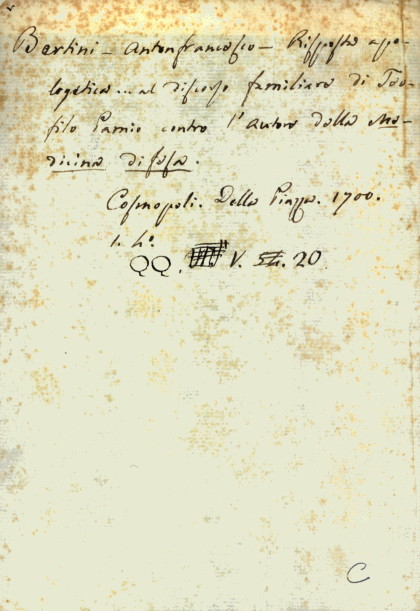 Bertini - Antonfrancesco - Risposta apo-
logetica... al discorso familiare di Teo-
filo Pamio contro l'autore della Me-
dicina difesa.
Cosmopoli. Della Piazza. 1700.
1. 4°.
QQ. V. 20
C